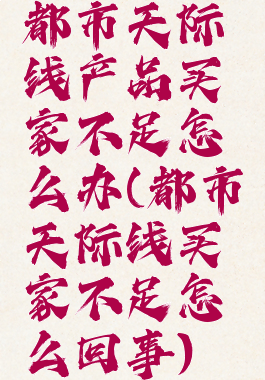 都市天际
线产品买
家不足怎
么办(都市
天际线买
家不足怎
么回事)